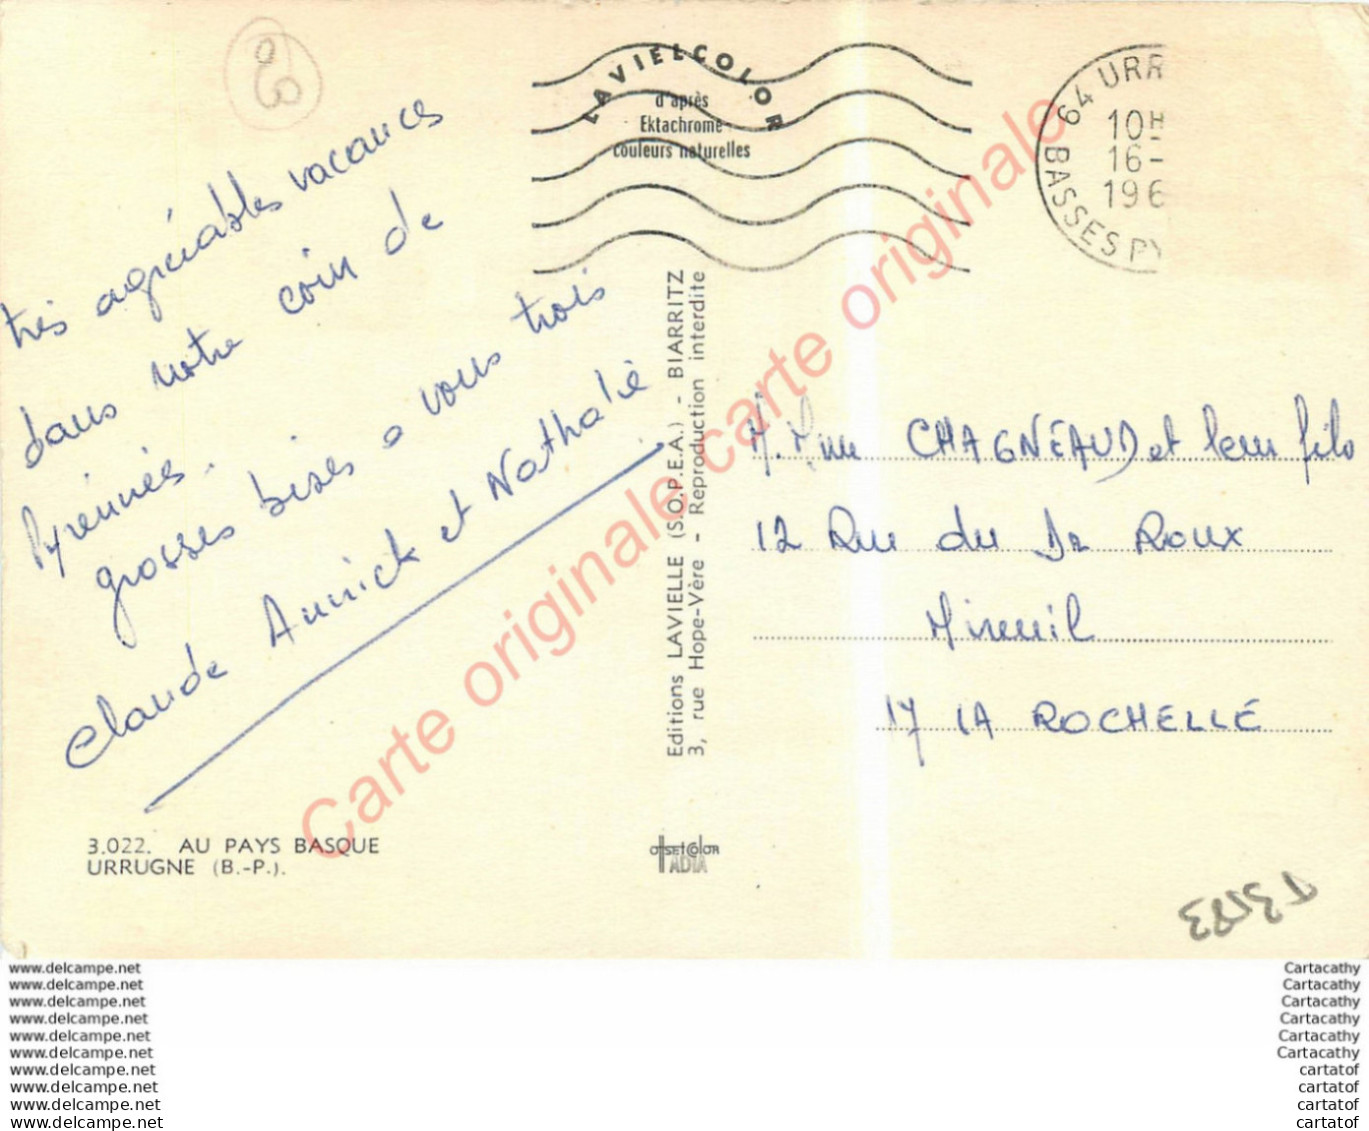 LAVIELCOLOR
d'après
Ektachrome
couleurs naturelles
64 URR
10H
16-
196
BASSES PY
très agréables vacances
dans notre coin de
Pyrénnées.
grosses bises a vous trois
Claude Annick et Nathalie
Editions LAVIELLE (S.O.P.E.A.) - BIARRITZ
3, rue Hope-Vère - Reproduction interdite
M. Mme CHAGNEAUD et leur fils
12 Rue du Dr Roux
Mireuil
17 LA ROCHELLE
3.022. AU PAYS BASQUE
URRUGNE (B.-P.).
OFFSETCOLOR
IADIA
Carte originale carte originale
www.delcampe.net
www.delcampe.net
www.delcampe.net
www.delcampe.net
www.delcampe.net
www.delcampe.net
www.delcampe.net
www.delcampe.net
www.delcampe.net
www.delcampe.net
Cartacathy
Cartacathy
Cartacathy
Cartacathy
Cartacathy
Cartacathy
cartatof
cartatof
cartatof
cartatof